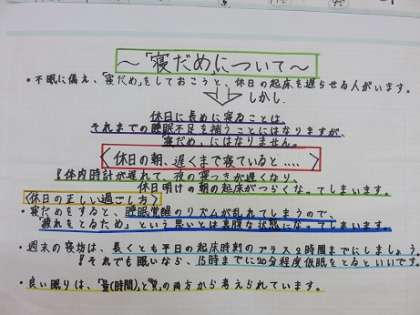 ～「寝だめ」について～
・不眠に備え、「寝だめ」をしておこうと、休日の起床を遅らせる人がいます。
しかし、
休日に長めに寝ることは、
それまでの睡眠不足を補うことにはなりますが、
「寝だめ」にはなりません。
〈休日の朝、遅くまで寝ていると……〉
体内時計が遅れて、夜の寝つきが遅くなり、
休日明けの朝の起床がつらくなってしまいます。
〈休日の正しい過ごし方〉
・寝だめをすると、睡眠覚醒のリズムが乱れてしまうので、
「疲れをとるため」という思いとは裏腹な状態になってしまいます。
・週末の寝坊は、長くとも平日の起床時刻のプラス2時間までにしましょう。
！それでも眠いなら、15時までに20分程度仮眠をとるといいです。
・良い眠りは、「量(時間)」と「質」の両方から考えられています。